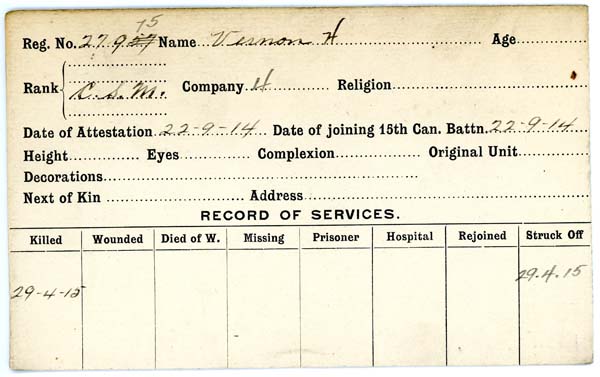 75
Reg. No. 279 57 Name Vernon H Age
Rank C.S.M. Company H Religion
Date of Attestation 22-9-14 Date of joining 15th Can. Battn. 22-9-14
Height Eyes Complexion Original Unit
Decorations
Next of Kin Address
RECORD OF SERVICES.
Killed Wounded Died of W. Missing Prisoner Hospital Rejoined Struck Off
29-4-15 29.4.15